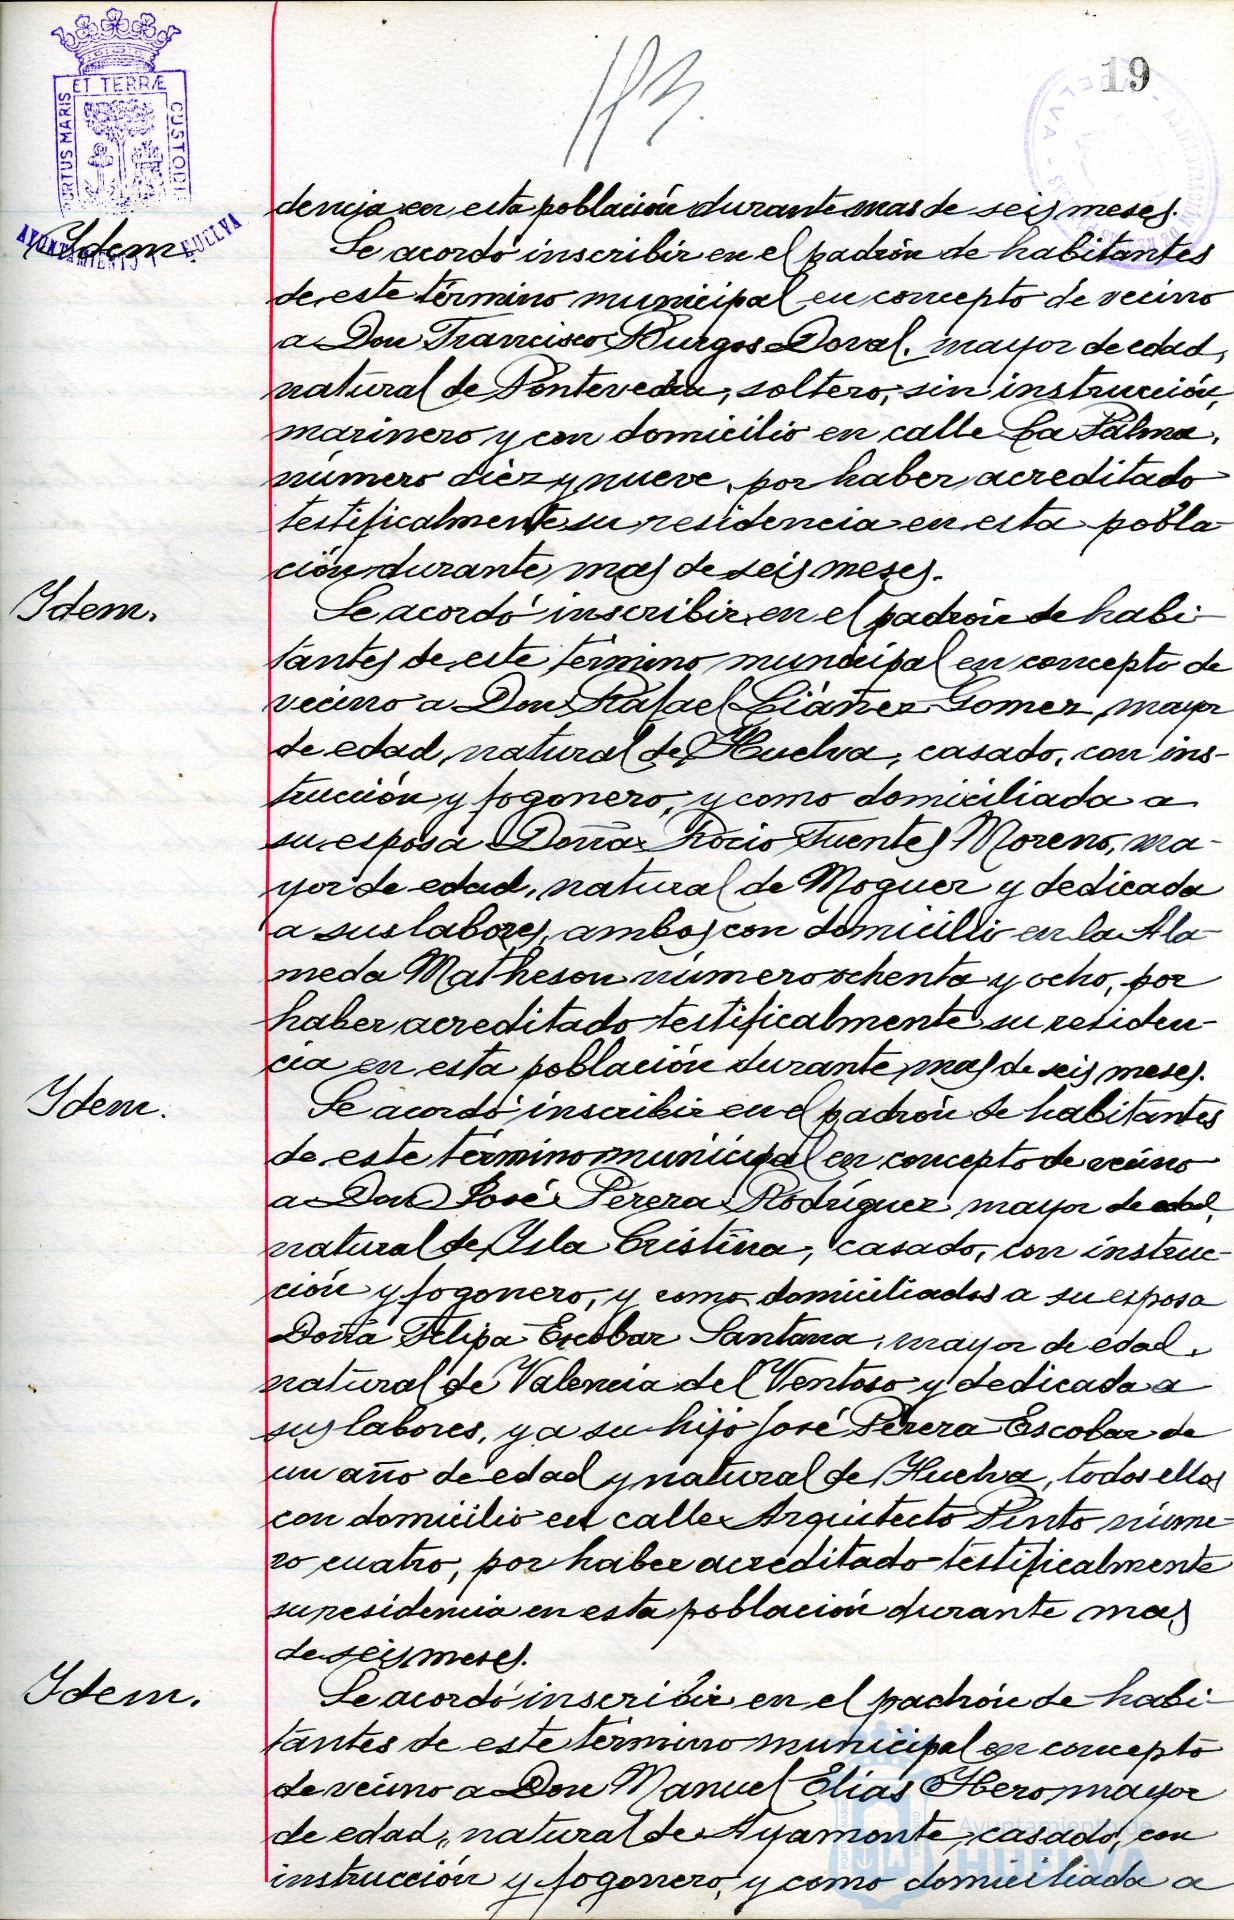 19
ET TERRÆ
PORTUS MARIS
CUSTODI
AYUNTAMIENTO HUELVA
dencia en esta población durante mas de seis meses.
Idem.
Se acordó inscribir en el padrón de habitantes
de este término municipal en concepto de vecino
a Don Francisco Burgos Doval, mayor de edad,
natural de Pontevedra, soltero, sin instrucción,
marinero y con domicilio en calle La Palma,
número diez y nueve, por haber acreditado
testificalmente su residencia en esta pobla
ción durante mas de seis meses.
Idem.
Se acordó inscribir en el padrón de habi-
tantes de este término municipal en concepto de
vecino a Don Rafael Liáñez Gomez, mayor
de edad, natural de Huelva, casado, con ins-
trucción y fogonero, y como domiciliada a
su esposa Doña Rocio Fuentes Moreno, ma-
yor de edad, natural de Moguer y dedicada
a sus labores, ambos con domicilio en la Ala-
meda Matheson número ochenta y ocho, por
haber acreditado testificalmente su residen-
cia en esta población durante mas de seis meses.
Idem.
Se acordó inscribir en el padrón de habitantes
de este término municipal en concepto de vecino
a Don José Perera Rodríguez, mayor de edad,
natural de Isla Cristina, casado, con instruc-
ción y fogonero, y como domiciliados a su esposa
Doña Felipa Escobar Santana, mayor de edad,
natural de Valencia del Ventoso y dedicada a
sus labores, y a su hijo José Perera Escobar de
un año de edad y natural de Huelva, todos ellos
con domicilio en calle Arquitecto Pinto núme-
ro cuatro, por haber acreditado testificalmente
su residencia en esta población durante mas
de seis meses.
Idem.
Se acordó inscribir en el padrón de habi-
tantes de este término municipal en concepto
de vecino a Don Manuel Elias Hero, mayor
de edad, natural de Ayamonte, casado, con
instrucción y fogonero, y como domiciliada a
Ayuntamiento de
HUELVA